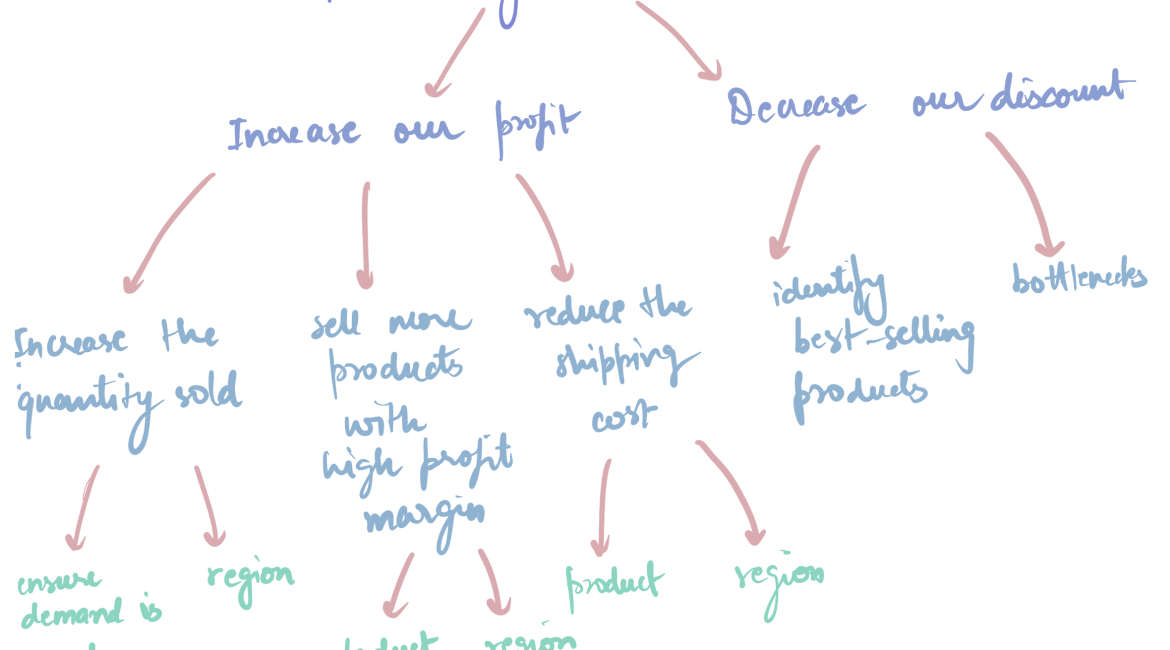 Increase our profit
Decrease our discount
Increase the
quantity sold
sell more
products
with
high profit
margin
reduce the
shipping
cost
identify
best-selling
products
bottlenecks
ensure
demand is
region
region
product
region